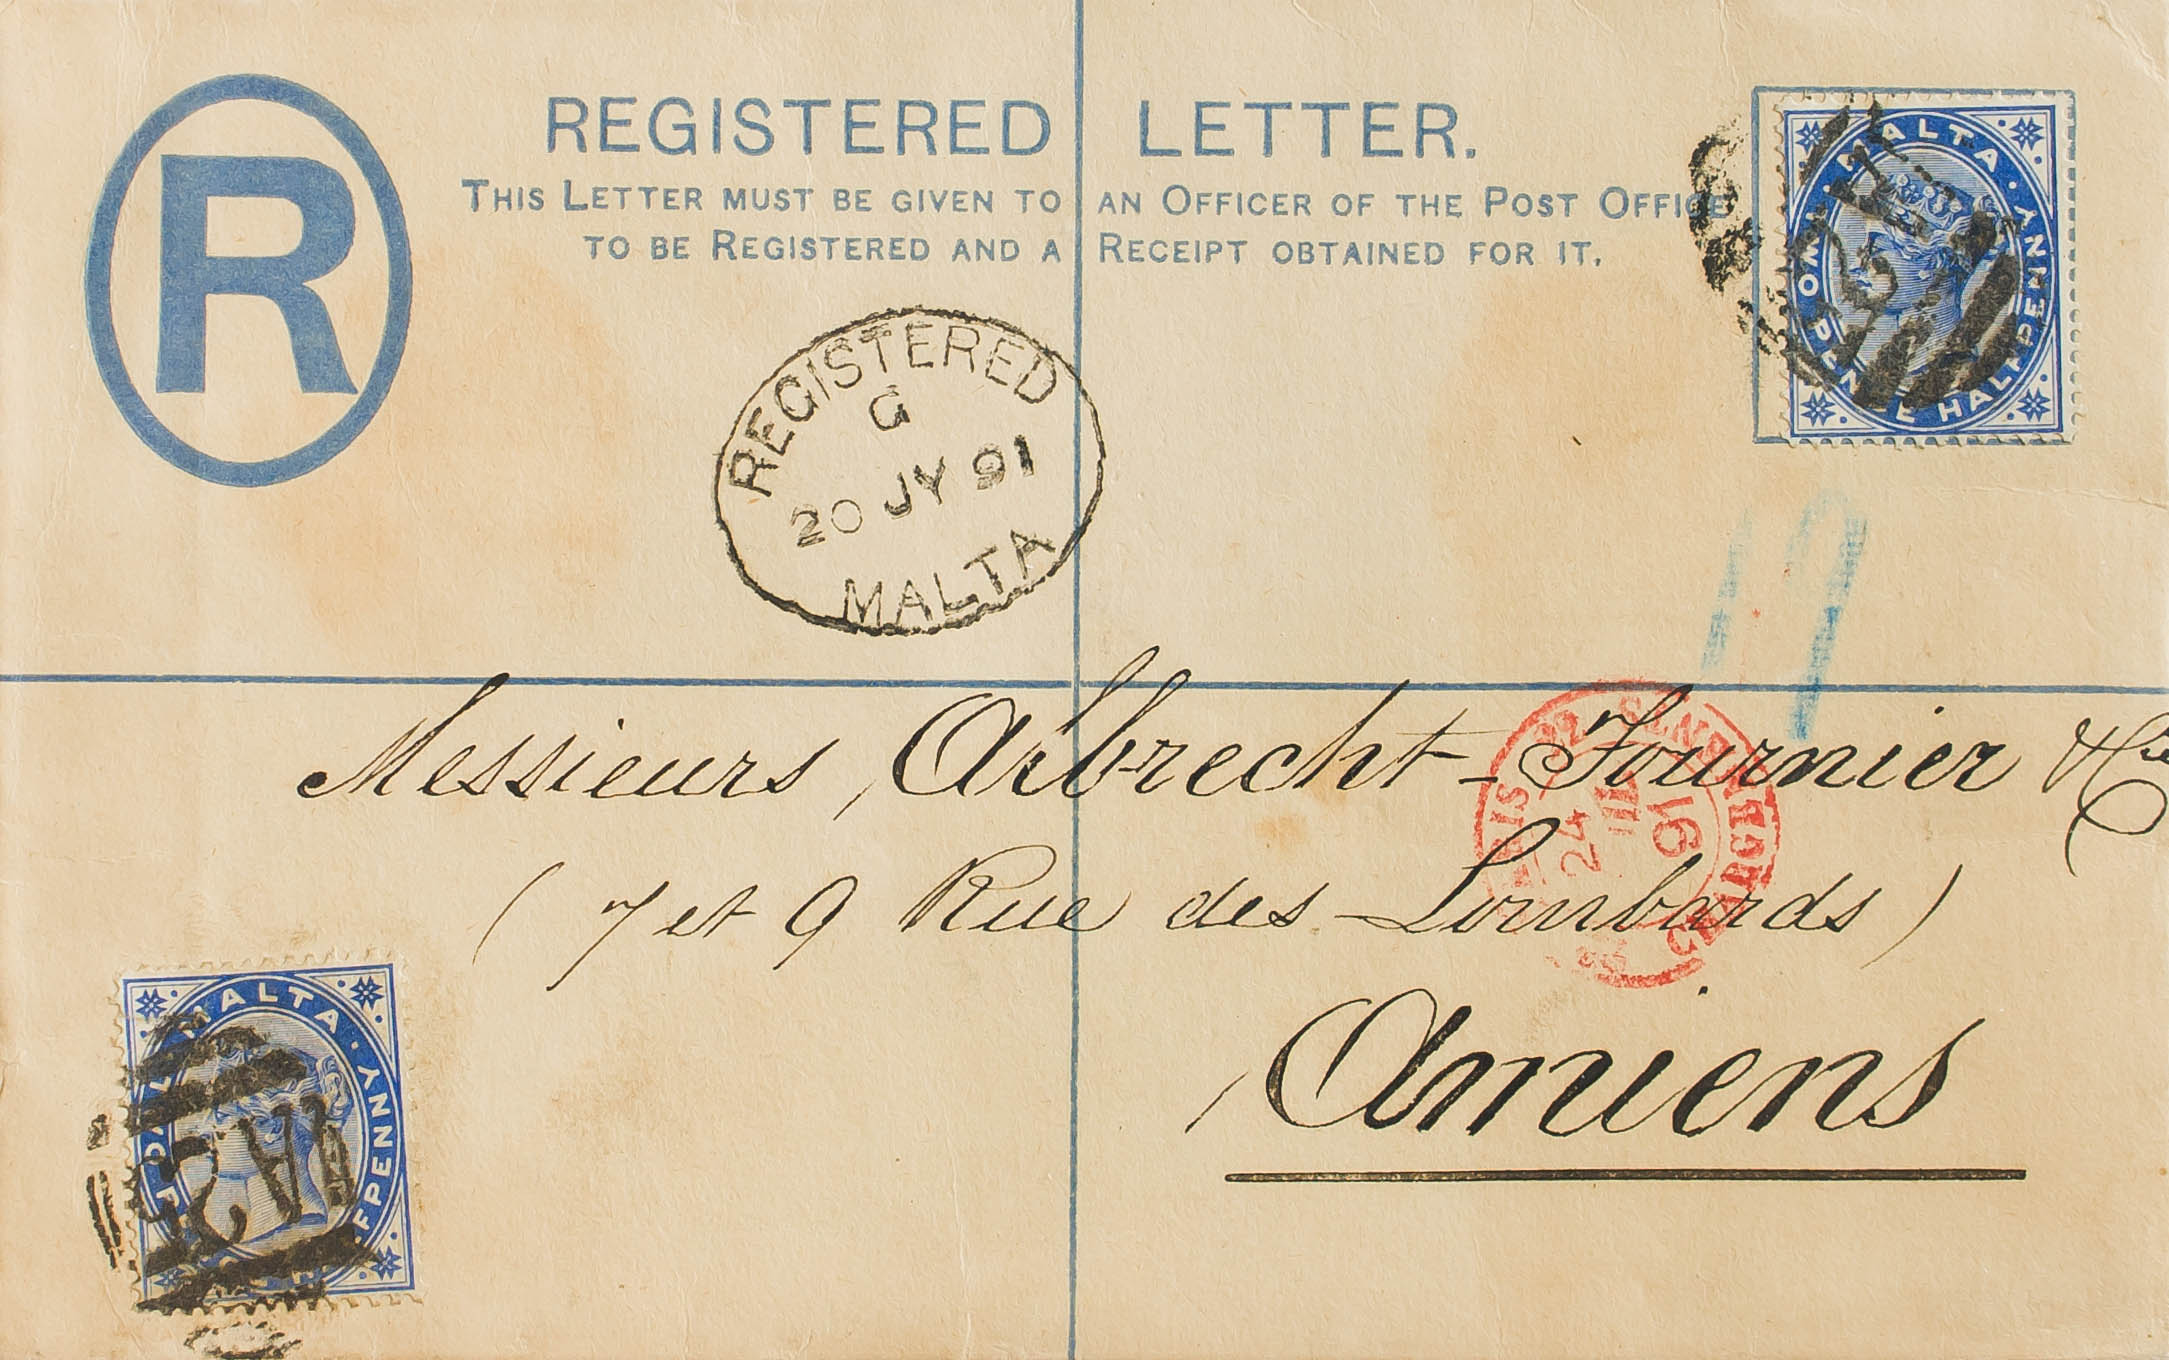 R
REGISTERED LETTER.
THIS LETTER MUST BE GIVEN TO AN OFFICER OF THE POST OFFICE
TO BE REGISTERED AND A RECEIPT OBTAINED FOR IT.
MALTA · TWO PENCE HALFPENNY ·
REGISTERED
G
20 JY 91
MALTA
Messieurs Albrecht-Fournier & Cie
24
91
CHARGEM
( 7 et 9 Rue des Lombards )
Amiens
MALTA · HALFPENNY
A25